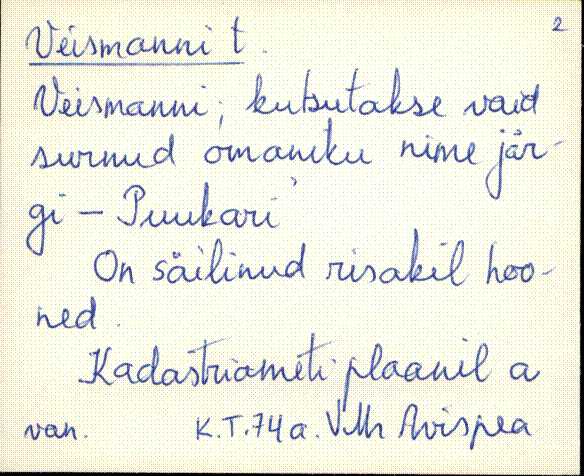 2
Veismanni t.
Veismanni, kutsutakse vaid
surnud omaniku nime jär-
gi – Puukari
On säilinud risakil hoo-
ned.
Kadastriameti plaanil a
van. K.T.74a. V.Mr Avispea